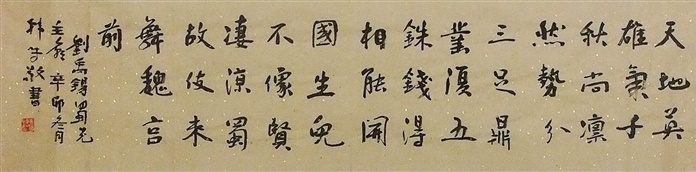 天地英
雄氣千
秋尚凛
然勢分
三足鼎
業復五
銖錢得
相能開
國生兒
不像賢
凄凉蜀
故伎来
舞魏宫
前
劉禹錫蜀先
主廟 辛卯 月
韩 敬書